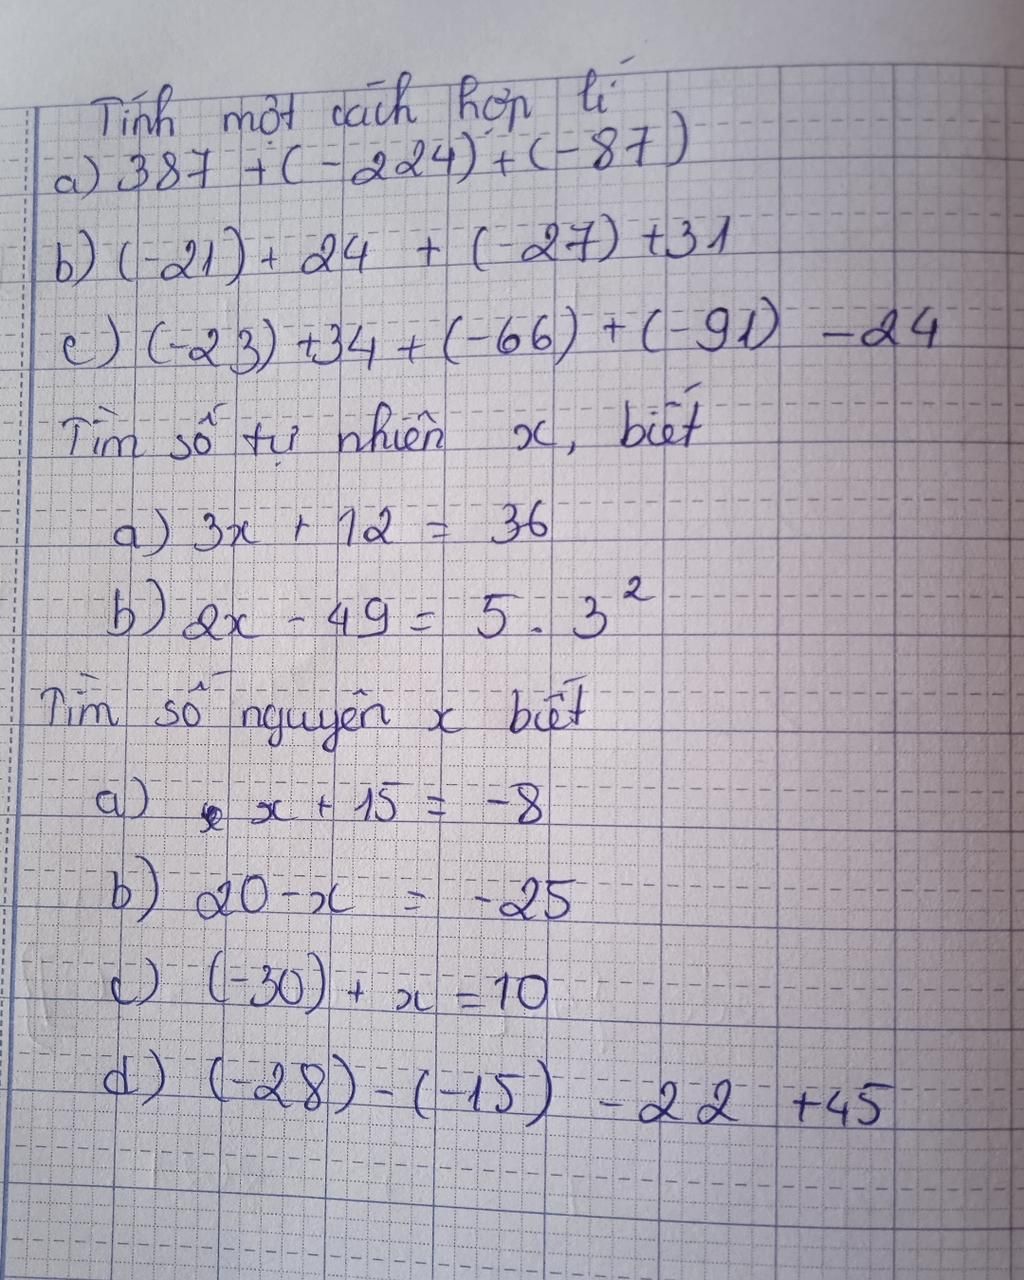 Tính một cách hợp lí
a) 387 + (-224) + (-87)
b) (-21) + 24 + (-27) + 31
c) (-23) + 34 + (-66) + (-91) - 24
Tìm số tự nhiên x, biết
a) 3x + 12 = 36
b) 2x - 49 = 5. 3²
Tìm số nguyên x biết
a) x + 15 = -8
b) 20 - x = -25
c) (-30) + x = 10
d) (-28) - (-15) - 22 + 45